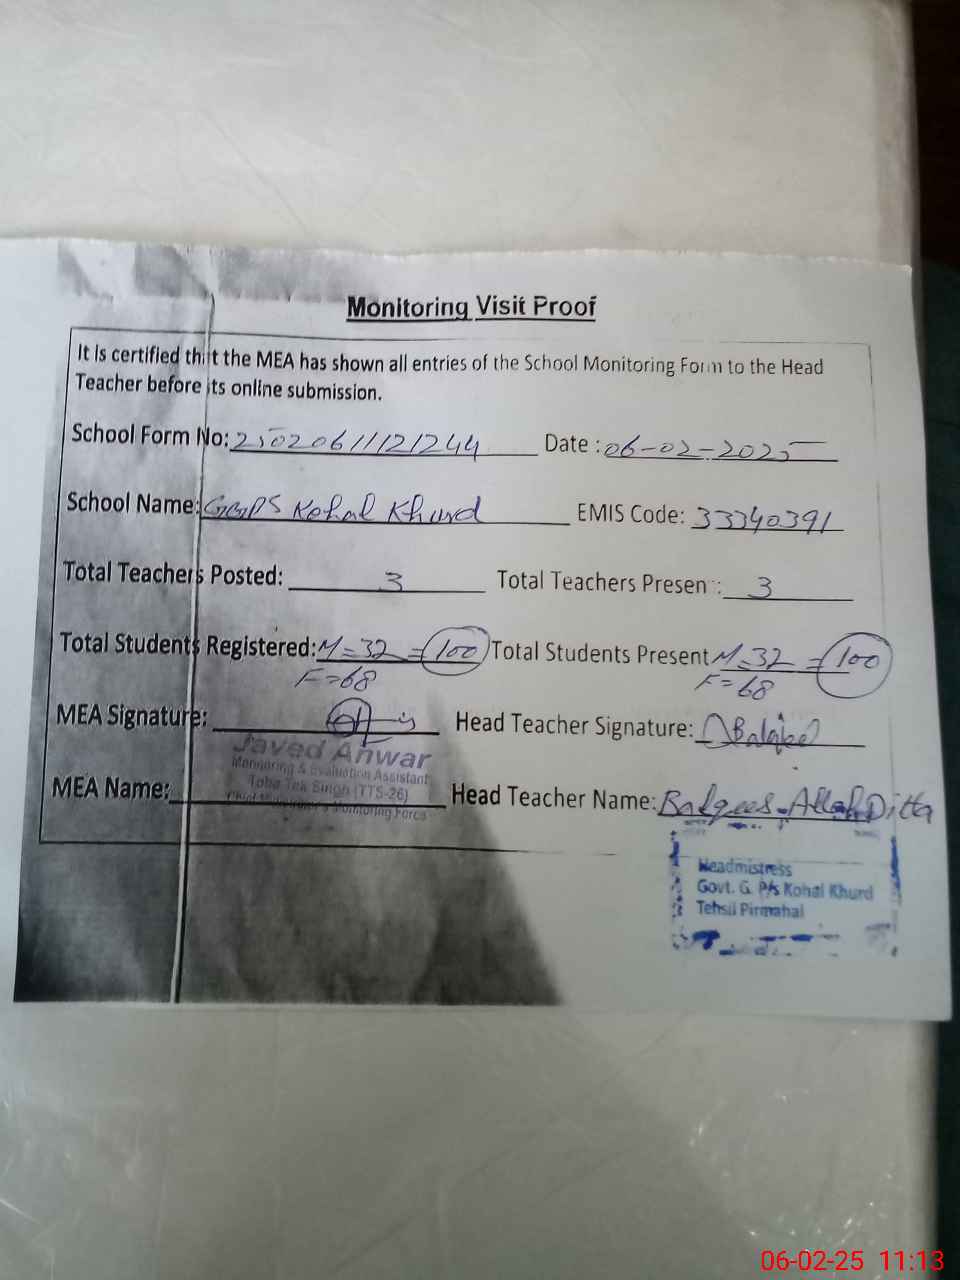 Monitoring Visit Proof
It is certified that the MEA has shown all entries of the School Monitoring Form to the Head
Teacher before its online submission.
School Form No: 25020611121244 Date : 06-02-2025
School Name: GGPS Kohal Khurd EMIS Code: 33340391
Total Teachers Posted: 3 Total Teachers Presen : 3
Total Students Registered: M=32 = 100 Total Students Present M=32 = 100
F=68 F=68
MEA Signature: Head Teacher Signature:
Javed Anwar
Monitoring & Evaluation Assistant
Toba Tek Singh (TTS-26)
Chief Minister's Monitoring Force
MEA Name: Head Teacher Name: Balqees Allah Ditta
Headmistress
Govt. G. P/s Kohal Khurd
Tehsil Pirmahal
06-02-25 11:13